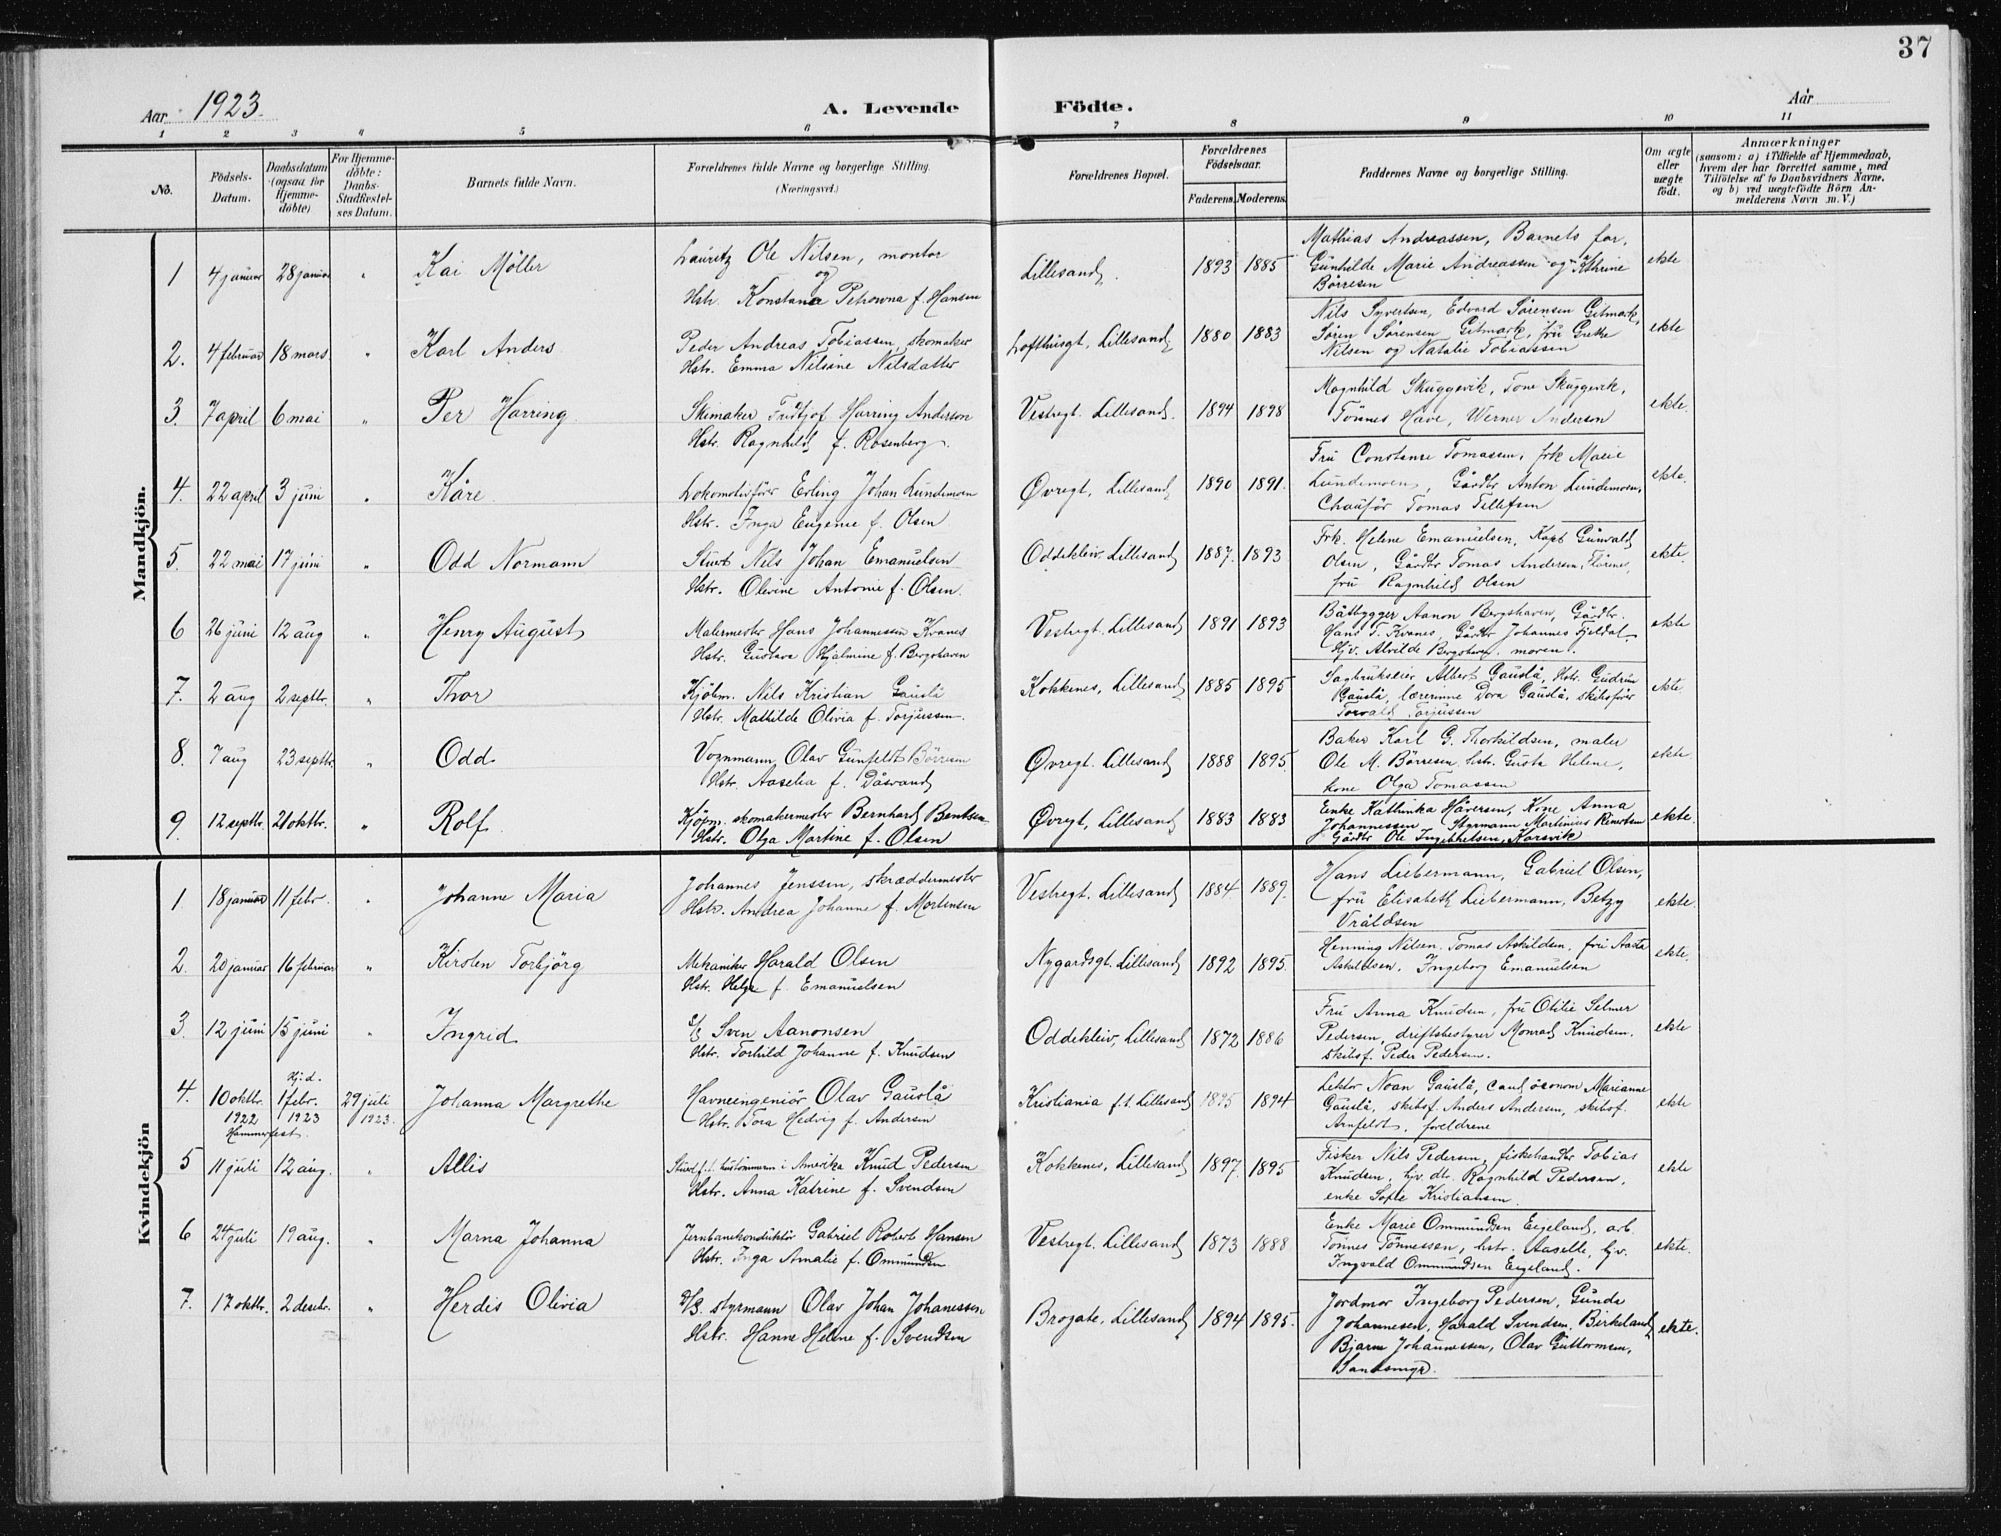 37
Aar 1923.
A. Levende Födte.
Aar
1 2 3 4 5 6 7 8 9 10 11
No.
Födsels-
Datum.
Daabsdatum
(ogsaa for
Hjemme-
döbte)
For Hjemme-
döbte:
Daabs-
Stadfæstel-
ses Datum.
Barnets fulde Navn.
Forældrenes fulde Navne og borgerlige Stilling.
(Næringsvei.)
Forældrenes Bopæl.
Forældrenes
Födselsaar.
Faderens. Moderens.
Faddernes Navne og borgerlige Stilling.
Om ægte
eller
uægte
födt.
Anmærkninger
(saasom: a) i Tilfælde af Hjemmedaab,
hvem der har forrettet samme, med
Tilföielse af to Daabsvidners Navne,
og b) ved uægtefödte Börn An-
melderens Navn m. V.)
Mandkjön.
1 4 januar 28 januar " Kai Möller
Lauritz Ole Nilsen, montör
og
Hstr. Konstance Petrowna f. Hansen
Lillesand. 1893 1885
Mathias Andreassen, Barnets far,
Gunhilde Marie Andreassen og Kathrine
Börresen
ekte
2. 4 februar 18 mars " Karl Anders
Peder Andreas Tobiassen, skomaker
Hstr. Emma Nilsine Nilsdatter
Lofthusgt, Lillesand 1880 1883
Nils Syvertsen, Edvard Sørensen Gitmark,
Søren Sørensen Gitmark, fru Grethe
Nilsen og Natalie Tobiassen
ekte
3. 7 april 6 mai " Per Harring
Skimaker Fridtjof Harring Anderson
Hstr. Ragnhild f. Rosenberg.
Vestregt. Lillesand. 1894 1898
Magnhild Skuggevik, Tone Skuggevik,
Tönnes Have, Werner Anderson
ekte.
4. 22 april 3 juni " Kåre
Lokomotivförer Erling Johan Lundemoen
Hstr. Inga Eugenie f. Olsen
Øvregt, Lillesand 1890 1891.
Fru Constance Tomassen, frk Marie
Lundemoen, Gårdbr Anton Lundemoen,
Chauför Tomas Tellefsen
ekte.
5. 22 mai 17 juni " Odd Normann
Stuert Nils Johan Emanuelsen
Hstr. Olivine Antonie f. Olsen.
Oddekleiv. Lillesand 1887. 1893
Frk. Helene Emanuelsen, Kapt Gunvald
Olsen, Gårdbr Tomas Andersen,
fru Ragnhild Olsen
ekte.
6 26 juni 12 aug " Henry August
Malermester Hans Johannessen Kvanes
Hstr. Gustava Hjalmine f. Bergshaven
Vestregt. Lillesand 1891 1893
Båtbygger Aanon Bergshaven, Gårdbr.
Hans T. Kvanes, Gårdbr Johannes Fjeldal
Hjv. Alvilde Bergshaven. moren.
ekte
7. 2 aug 2 septbr. " Thor
Kjöbm. Nils Kristian Gauslå
Hstr. Mathilde Olivia f. Torjussen.
Kokkenes, Lillesand 1885 1895
Sagbrukseier Albert Gauslå, Hstr. Gudrun
Gauslå, lærerinne Dora Gauslå, skibsförer
Torvald Torjussen
ekte.
8. 7 aug 23 septbr. " Odd
Vognmann Olav Gunfeldt Börresen
Hstr. Aaselia f. Dåsvand
Øvregt. Lillesand 1888 1895.
Baker Karl G. Thorkildsen, maler
Ole M. Börresen hstr. Gusta Helene,
kone Olga Tomassen
ekte
9. 12 septbr. 21 oktbr. " Rolf
Kjöpm. skomakermester Bernhard Bentsen
Hstr. Olga Martine f. Olsen
Øvregt, Lillesand 1883 1883
Enke Kathinka Håversen, Kone Anna
Johannessen Styrmann Martinius Reinertsen
Gårdbr Ole Ingebretsen, Korsvik
ekte.
Kvindekjön
1 18 januar 11 febr. " Johanne Maria
Johannes Jenssen, skræddermester
Hstr. Andrea Johanne f. Mortensen
Vestregt. Lillesand 1884 1889.
Hans Liebermann, Gabriel Olsen,
fru Elisabeth Liebermann, Betzy
Vråldsen
ekte.
2. 20 januar 16 februar " Kirsten Torbjörg
Mekaniker Harald Olsen
Hstr. Helga f. Emanuelsen
Nygardsgt. Lillesand 1892 1895.
Henning Nilsen. Tomas Askildsen, fru Aasta
Askildsen, Ingeborg Emanuelsen
ekte.
3. 12 juni 15 juni " Ingrid
Sven Aanonsen
Hstr. Torhild Johanne f. Knudsen
Oddekleiv. Lillesand 1872 1886
Fru Anna Knudsen, fru Otilie Selmer
Pedersen, driftsbestyrer Monrad Knudsen.
skibsf. Peder Pedersen.
ekte
4. 10 oktbr. 1922 Hammerfest. Hj.d. 1 febr. 1923 29 juli 1923. Johanna Margrethe
Havneengeniör Olav Gauslå
Hstr. Tora Hedvig f. Andersen
Kristiania f.t. Lillesand 1895 1894
Lektor Noan Gauslå, cand öconom Marianne
Gauslå, skibsf. Anders Andersen, skibsf.
Arnfeldt, foreldrene
ekte
5 11 juli 12 aug. " Allis
i Amerika Knud Pedersen
Hstr. Anna Katrine f. Svendsen
Kokkenes, Lillesand 1897. 1895
Fisker Nils Pedersen, fiskehandler Tobias
Knudsen, hjv. dtr. Ragnhild Pedersen,
enke Sofie Kristiansen
ekte
6 24 juli 19 aug. " Marna Johanna
Jernbanekonduktör Gabriel Robert Hansen
Hstr. Inga Amalie f. Ommundsen
Vestregt. Lillesand 1873 1888
Enke Marie Ommundsen Eigeland, arb.
Tönnes Tönnessen, hstr. Aaselle, hjv.
Ingvald Ommundsen Eigeland.
ekte.
7. 17 oktbr. 2 desebr. " Herdis Olivia
styrmann Olav Johan Johanessen
Hstr. Hanne Helene f. Svendsen
Brogate, Lillesand 1894 1895.
Jordmor Ingeborg Pedersen, Gunda
Johannesen, Harald Svendsen, Birkeland
Bjarne Johannessen, Olav Guttormsen,
Sandsmyr.
ekte.